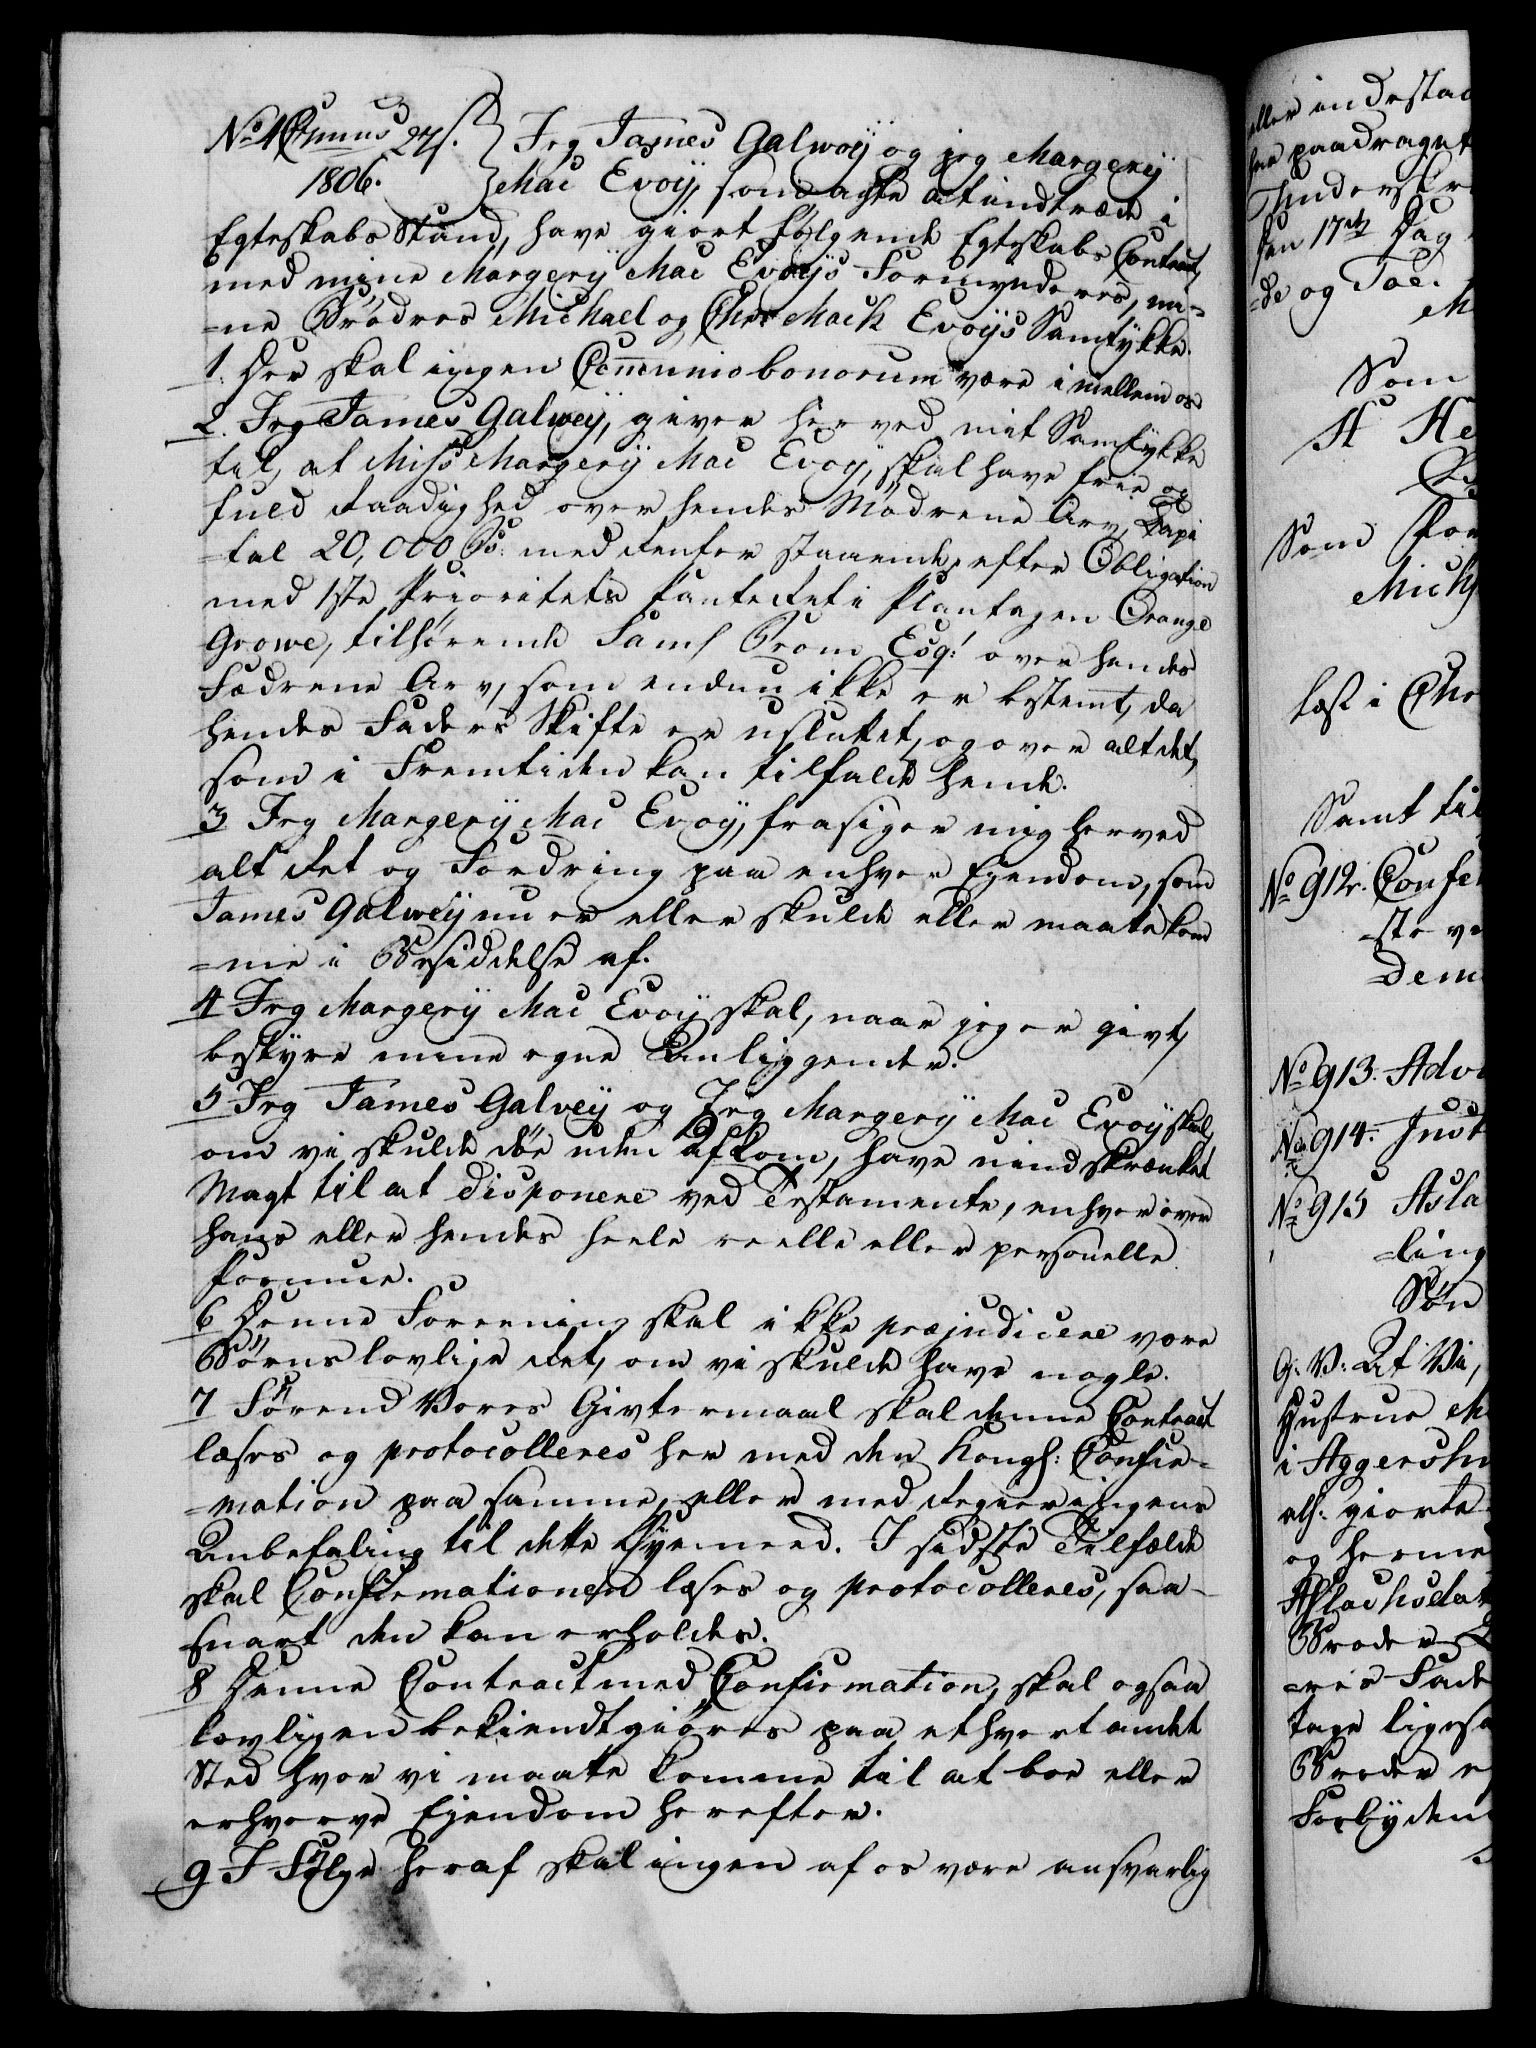 No 4 27 s. Jeg James Galwey og jeg Margerÿ
1806. Mac Evoÿ, som agte at indtræde i
Egteskabs Stand, have giort følgende Egteskabs Contract,
med mine Margerÿ Mac Evoÿs Formynderes, mi-
=ne Brødres Michael og Chr Mack Evoÿs Samtykke.
1. Der skal ingen Communio bonorum være imellem os
2. Jeg James Galweÿ, giver herved mit Samtykke
til, at Miss Margerÿ Mac Evoÿ, skal have frie og
fuld Raadighed over hendes Mødrene Arv, Capi
=tal 20,000 Ps: med Renter staaende, efter Obligation
med 1ste Prioritets Panteret i Plantagen Orange
Growe, tilhørende Saml Prom Esqr: over hendes
Fædrene Arv, som endnu ikke er bestemt, da
hendes Faders Skifte er usluttet, og over alt det,
som i Fremtiden kan tilfalde hende.
3 Jeg Margerÿ Mac Evoÿ, frasiger mig herved
alt Ret og Fordring paa enhver Ejendom, som
James Galweÿ nu er eller skulde eller maatte kom
=me i Besiddelse af.
4 Jeg Margerÿ Mac Evoÿ skal, naar jeg er givt,
bestyre mine egne Anliggender.
5 Jeg James Galveÿ og Jeg Margerÿ Mac Evoÿ skal,
om vi skulde døe uden Afkom, have uindskrænket
Magt til at disponere ved Testamente, enhver over
hans eller hendes heele reelle eller personelle
Formue.
6 Denne Foreening skal ikke præjudicere vore
Børns lovlige Ret, om vi skulde have nogle.
7 Førend Vores Givtermaal skal denne Contract
læses og protocolleres her med den Kongl: Confir-
=mation paa samme, eller med Regieringens
Anbefaling til dette Øyemeed. I sidste Tilfælde
skal Confirmationen læses og protocolleres, saa-
snart den kan erholdes.
8 Denne Contract med Confirmation, skal ogsaa
lovligen bekiendtgiøres paa ethvert andet
Sted hvor vi maatte komme til at boe eller
erhverve Ejendom herefter.
9 I Følge heraf skal ingen af os være ansvarlig
eller indestaa
paadraget
Underskre
den 17de Dag
=de og Toe.
M
Som
H He
Som for
Mich
læst i Chr
Samt til
No 912. Confi
=ste
Dem
No 913. Adv
No 914. Just
No 915 Asla
=ling
Søn
G: V: At Vi,
Hustrue M
i Aggershu
all: giorte
og herme
Aslachsdat
Broder
=res Fade
tage ligesa
Broder e
Forbyden